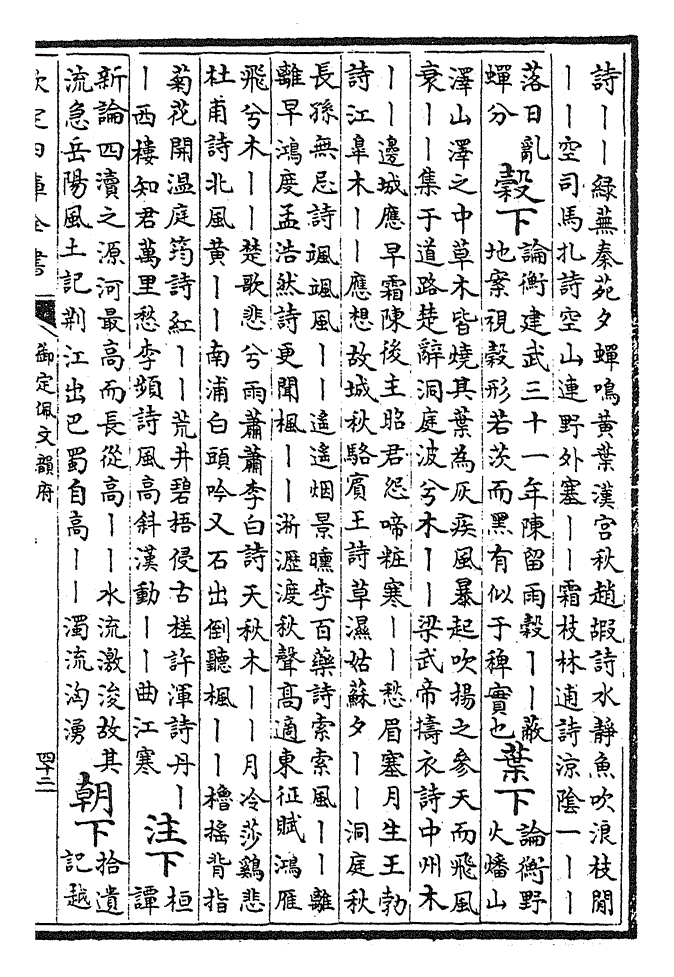 詩丨丨緑蕪秦苑夕蟬鳴黄葉漢宫秋趙嘏詩水靜魚吹浪枝閒
丨丨空司馬扎詩空山連野外塞丨丨霜枝林逋詩凉陰一丨丨
落日亂
蟬分
榖下
論衡建武三十一年陳留雨榖丨丨蔽
地案視榖形若茨而黑有似于稗實也
葉下
論衡野
火燔山
澤山澤之中草木皆燒其葉為灰疾風暴起吹揚之參天而飛風
衰丨丨集于道路楚辭洞庭波兮木丨丨梁武帝擣衣詩中州木
丨丨邊城應早霜陳後主昭君怨啼粧寒丨丨愁眉塞月生王勃
詩江臯木丨丨應想故城秋駱賓王詩草濕姑蘇夕丨丨洞庭秋
長孫無忌詩颯颯風丨丨遥遥烟景曛李百藥詩索索風丨丨離
離早鴻度孟浩然詩更聞楓丨丨淅瀝渡秋聲高適東征賦鴻雁
飛兮木丨丨楚歌悲兮雨蕭蕭李白詩天秋木丨丨月冷莎鷄悲
杜甫詩北風黄丨丨南浦白頭吟又石出倒聽楓丨丨櫓揺背指
菊花開温庭筠詩紅丨丨荒井碧梧侵古槎許渾詩丹丨
丨西樓知君萬里愁李頻詩風高斜漢動丨丨曲江寒
注下
桓
譚
新論四瀆之源河最高而長從高丨丨水流激浚故其
流急岳陽風土記荆江出巴蜀自高丨丨濁流洶湧
朝下
拾遺
記越
欽定四庫全書
御定佩文韻府
四十二